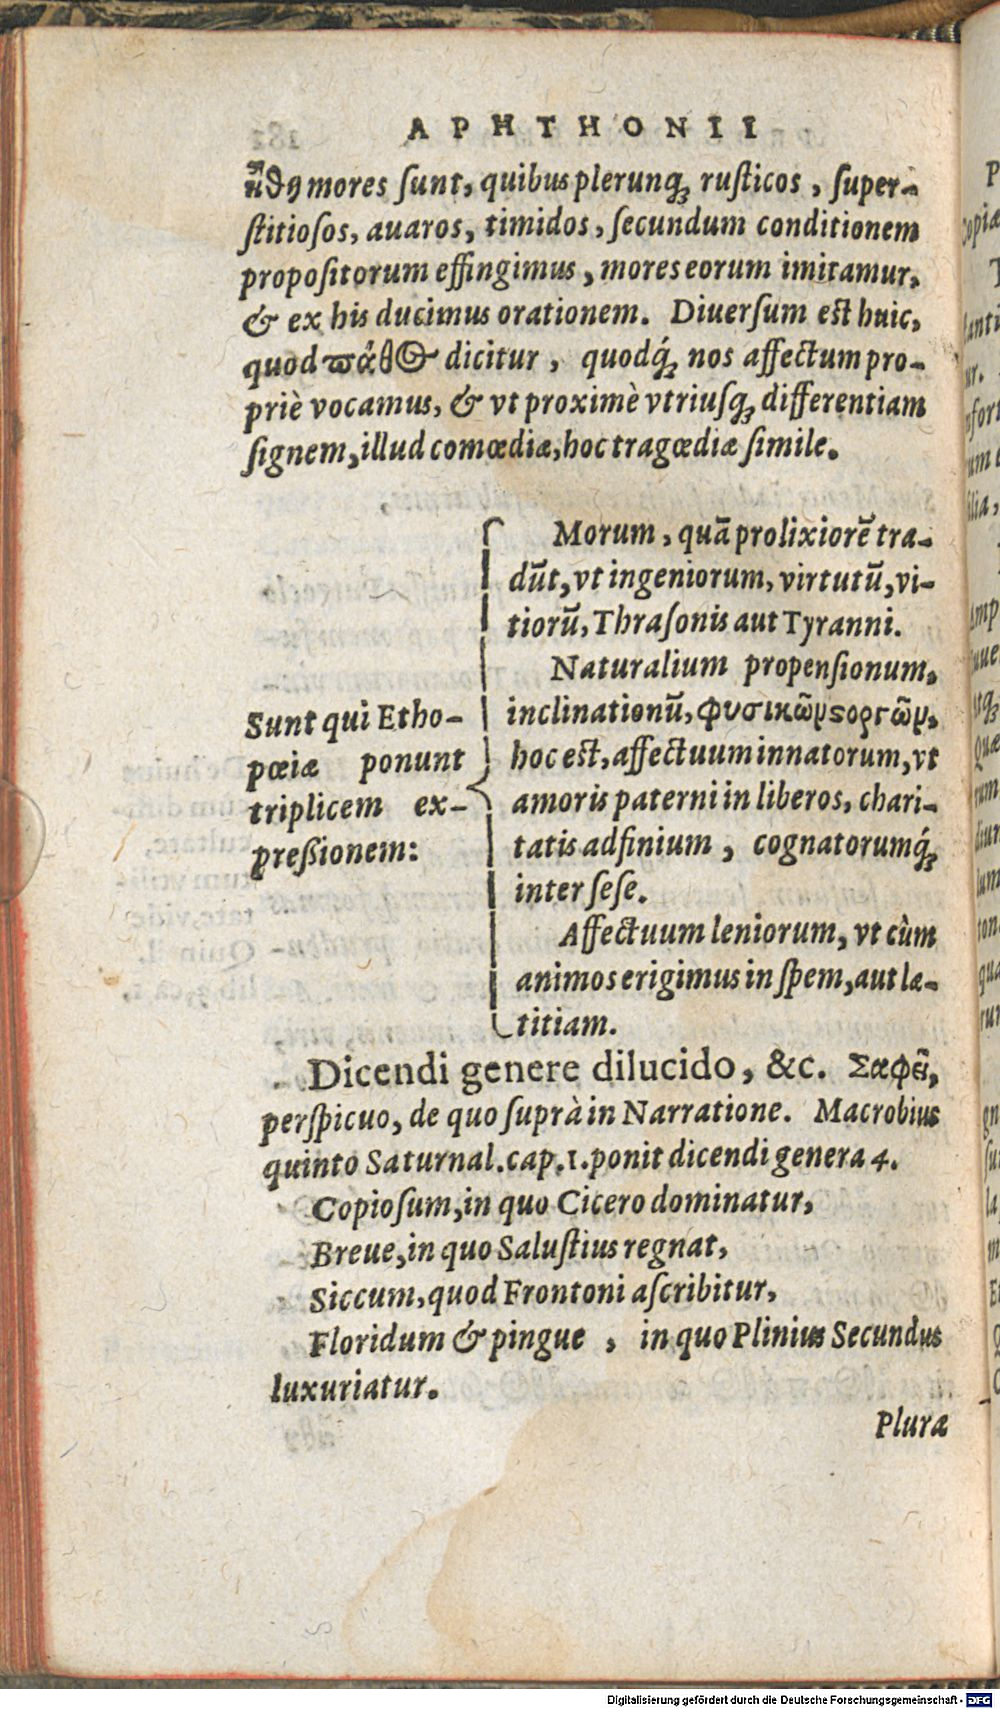 APHTHONII
ἤθη mores ſunt, quibus plerunq́ꝫ ruſticos, ſuper-
ſtitioſos, auaros, timidos, ſecundum conditionem
propoſitorum effingimus, mores eorum imitamur,
& ex his ducimus orationem. Diuerſum est huic,
quod πάθος dicitur, quodq́ꝫ nos affectum pro-
priè vocamus, & vt proximè vtriuſqꝫ differentiam
ſignem, illud comœdiæ, hoc tragœdiæ ſimile.
Sunt qui Etho-
pœiæ ponunt
triplicem ex-
preßionem:
Morum, quā prolixiorē tra-
dūt, vt ingeniorum, virtutū, vi-
tiorū, Thraſonis aut Tyranni.
Naturalium propenſionum,
inclinationū, φυσικῶν στοργῶν,
hoc est, affectuum innatorum, vt
amoris paterni in liberos, chari-
tatis adfinium, cognatorumq́ꝫ
inter ſeſe.
Affectuum leniorum, vt cùm
animos erigimus in ſpem, aut læ-
titiam.
Dicendi genere dilucido, &c. Σαφεῖ,
perſpicuo, de quo ſuprà in Narratione. Macrobius
quinto Saturnal. cap. 1. ponit dicendi genera 4.
Copioſum, in quo Cicero dominatur,
Breue, in quo Saluſtius regnat,
Siccum, quod Frontoni aſcribitur,
Floridum & pingue, in quo Plinius Secundus
luxuriatur.
Pluræ
Digitalisierung gefördert durch die Deutsche Forschungsgemeinschaft - DFG